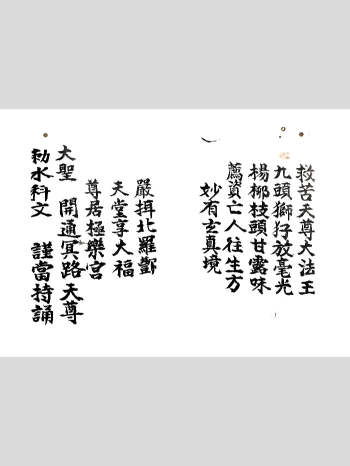 救苦天尊大法王
九頭獅犼放毫光
楊柳枝頭甘露味
薦資亡人往生方
妙有玄真境
嚴持北羅酆
天堂享大福
尊居極樂宮
大聖 開通冥路天尊
勑水科文 謹當持誦